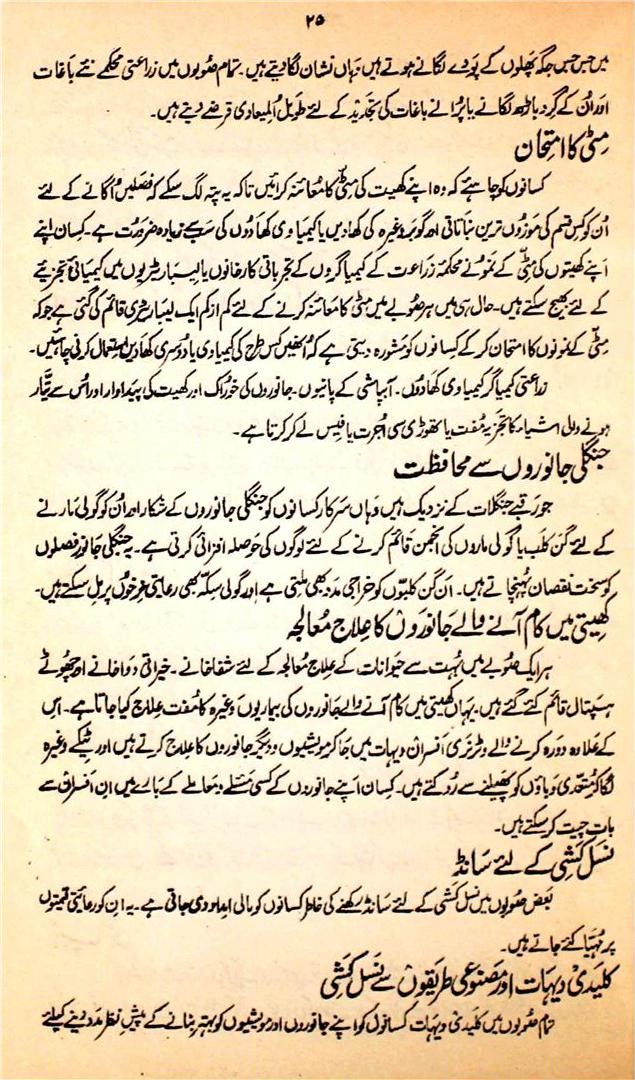 ۲۵
میں جس جس جگہ پھلوں کے پودے لگانے ہوتے ہیں نہاں نشان لگا دیتے ہیں۔ تمام صوبوں میں زراعتی محکمے نئے باغات
اور اُن کے گرد باڑھ لگانے یا پرانے باغات کی تجدید کے لئے طویل المیعادی قرضے دیتے ہیں۔
مٹی کا امتحان
کسانوں کو چاہئے کہ وہ اپنے کھیت کی مٹی کا معائنہ کرائیں تاکہ یہ پتہ لگ سکے کہ فصلیں اُگانے کے لئے
اُن کو کس قسم کی موزوں ترین نباتاتی اور گوبر وغیرہ کی کھادیں یا کیمیاوی کھادوں کی سب سے زیادہ ضرورت ہے۔ کسان اپنے
اپنے کھیتوں کی مٹی کے نمونے محکمۂ زراعت کے کیمیاگروں کے تجرباتی کارخانوں یا لیبارٹریوں میں کیمیائی تجزیئے
کے لئے بھیج سکتے ہیں۔ حال ہی میں ہر صوبے میں مٹی کا معائنہ کرنے کے لئے کم از کم ایک لیبارٹری قائم کی گئی ہے جو کہ
مٹی کے نمونوں کا امتحان کر کے کسانوں کو مشورہ دیتی ہے کہ اُنھیں کس طرح کی کیمیاوی یا دوسری کھادیں استعمال کرنی چاہئیں۔
زراعتی کیمیاگر کیمیاوی کھادوں۔ آبپاشی کے پانیوں۔ جانوروں کی خوراک اور کھیت کی پیداوار اور اُس سے تیار
ہونے والی اشیاء کا تجزیہ مفت یا تھوڑی سی اُجرت یا فیس لے کر کرتا ہے۔
جنگلی جانوروں سے محافظت
جو رقبے جنگلات کے نزدیک ہیں وہاں سرکار کسانوں کو جنگلی جانوروں کے شکار اور اُن کو گولی مارنے
کے لئے گن کلب یا گولی ماروں کی انجمن قائم کرنے کے لئے لوگوں کی حوصلہ افزائی کرتی ہے۔ یہ جنگلی جانور فصلوں
کو سخت نقصان پہنچاتے ہیں۔ ان گن کلبوں کو خراجی مدد بھی ملتی ہے اور گولی سکّہ بھی رعایتی نرخوں پر مل سکتے ہیں۔
کھیتی میں کام آنے والے جانوروں کا علاج معالجہ
ہر ایک صوبے میں بہت سے حیوانات کے علاج معالجہ کے لئے شفاخانے۔ خیراتی دواخانے اور چھوٹے
ہسپتال قائم کئے گئے ہیں۔ یہاں کھیتی میں کام آنے والے جانوروں کی بیماریوں وغیرہ کا مفت علاج کیا جاتا ہے۔ اس
کے علاوہ دورہ کرنے والے وٹرنری آفسران دیہات میں جا کر مویشیوں و دیگر جانوروں کا علاج کرتے ہیں اور ٹیکے وغیرہ
لگا کر متعدی وباؤں کو پھیلنے سے روکتے ہیں۔ کسان اپنے جانوروں کے کسی مسئلے و معاملے کے بارے میں ان آفسران سے
بات چیت کر سکتے ہیں۔
نسل کشی کے لئے سانڈ
بعض صوبوں میں نسل کشی کے لئے سانڈ رکھنے کی خاطر کسانوں کو مالی امداد دی جاتی ہے۔ یہ ان کو رعائتی قیمتوں
پر مہیا کئے جاتے ہیں۔
کلیدی دیہات اور مصنوعی طریقوں سے نسل کشی
تمام صوبوں میں کلیدی دیہات کسانوں کو اپنے جانوروں اور مویشیوں کو بہتر بنانے کے پیش نظر مدد دینے کیلئے